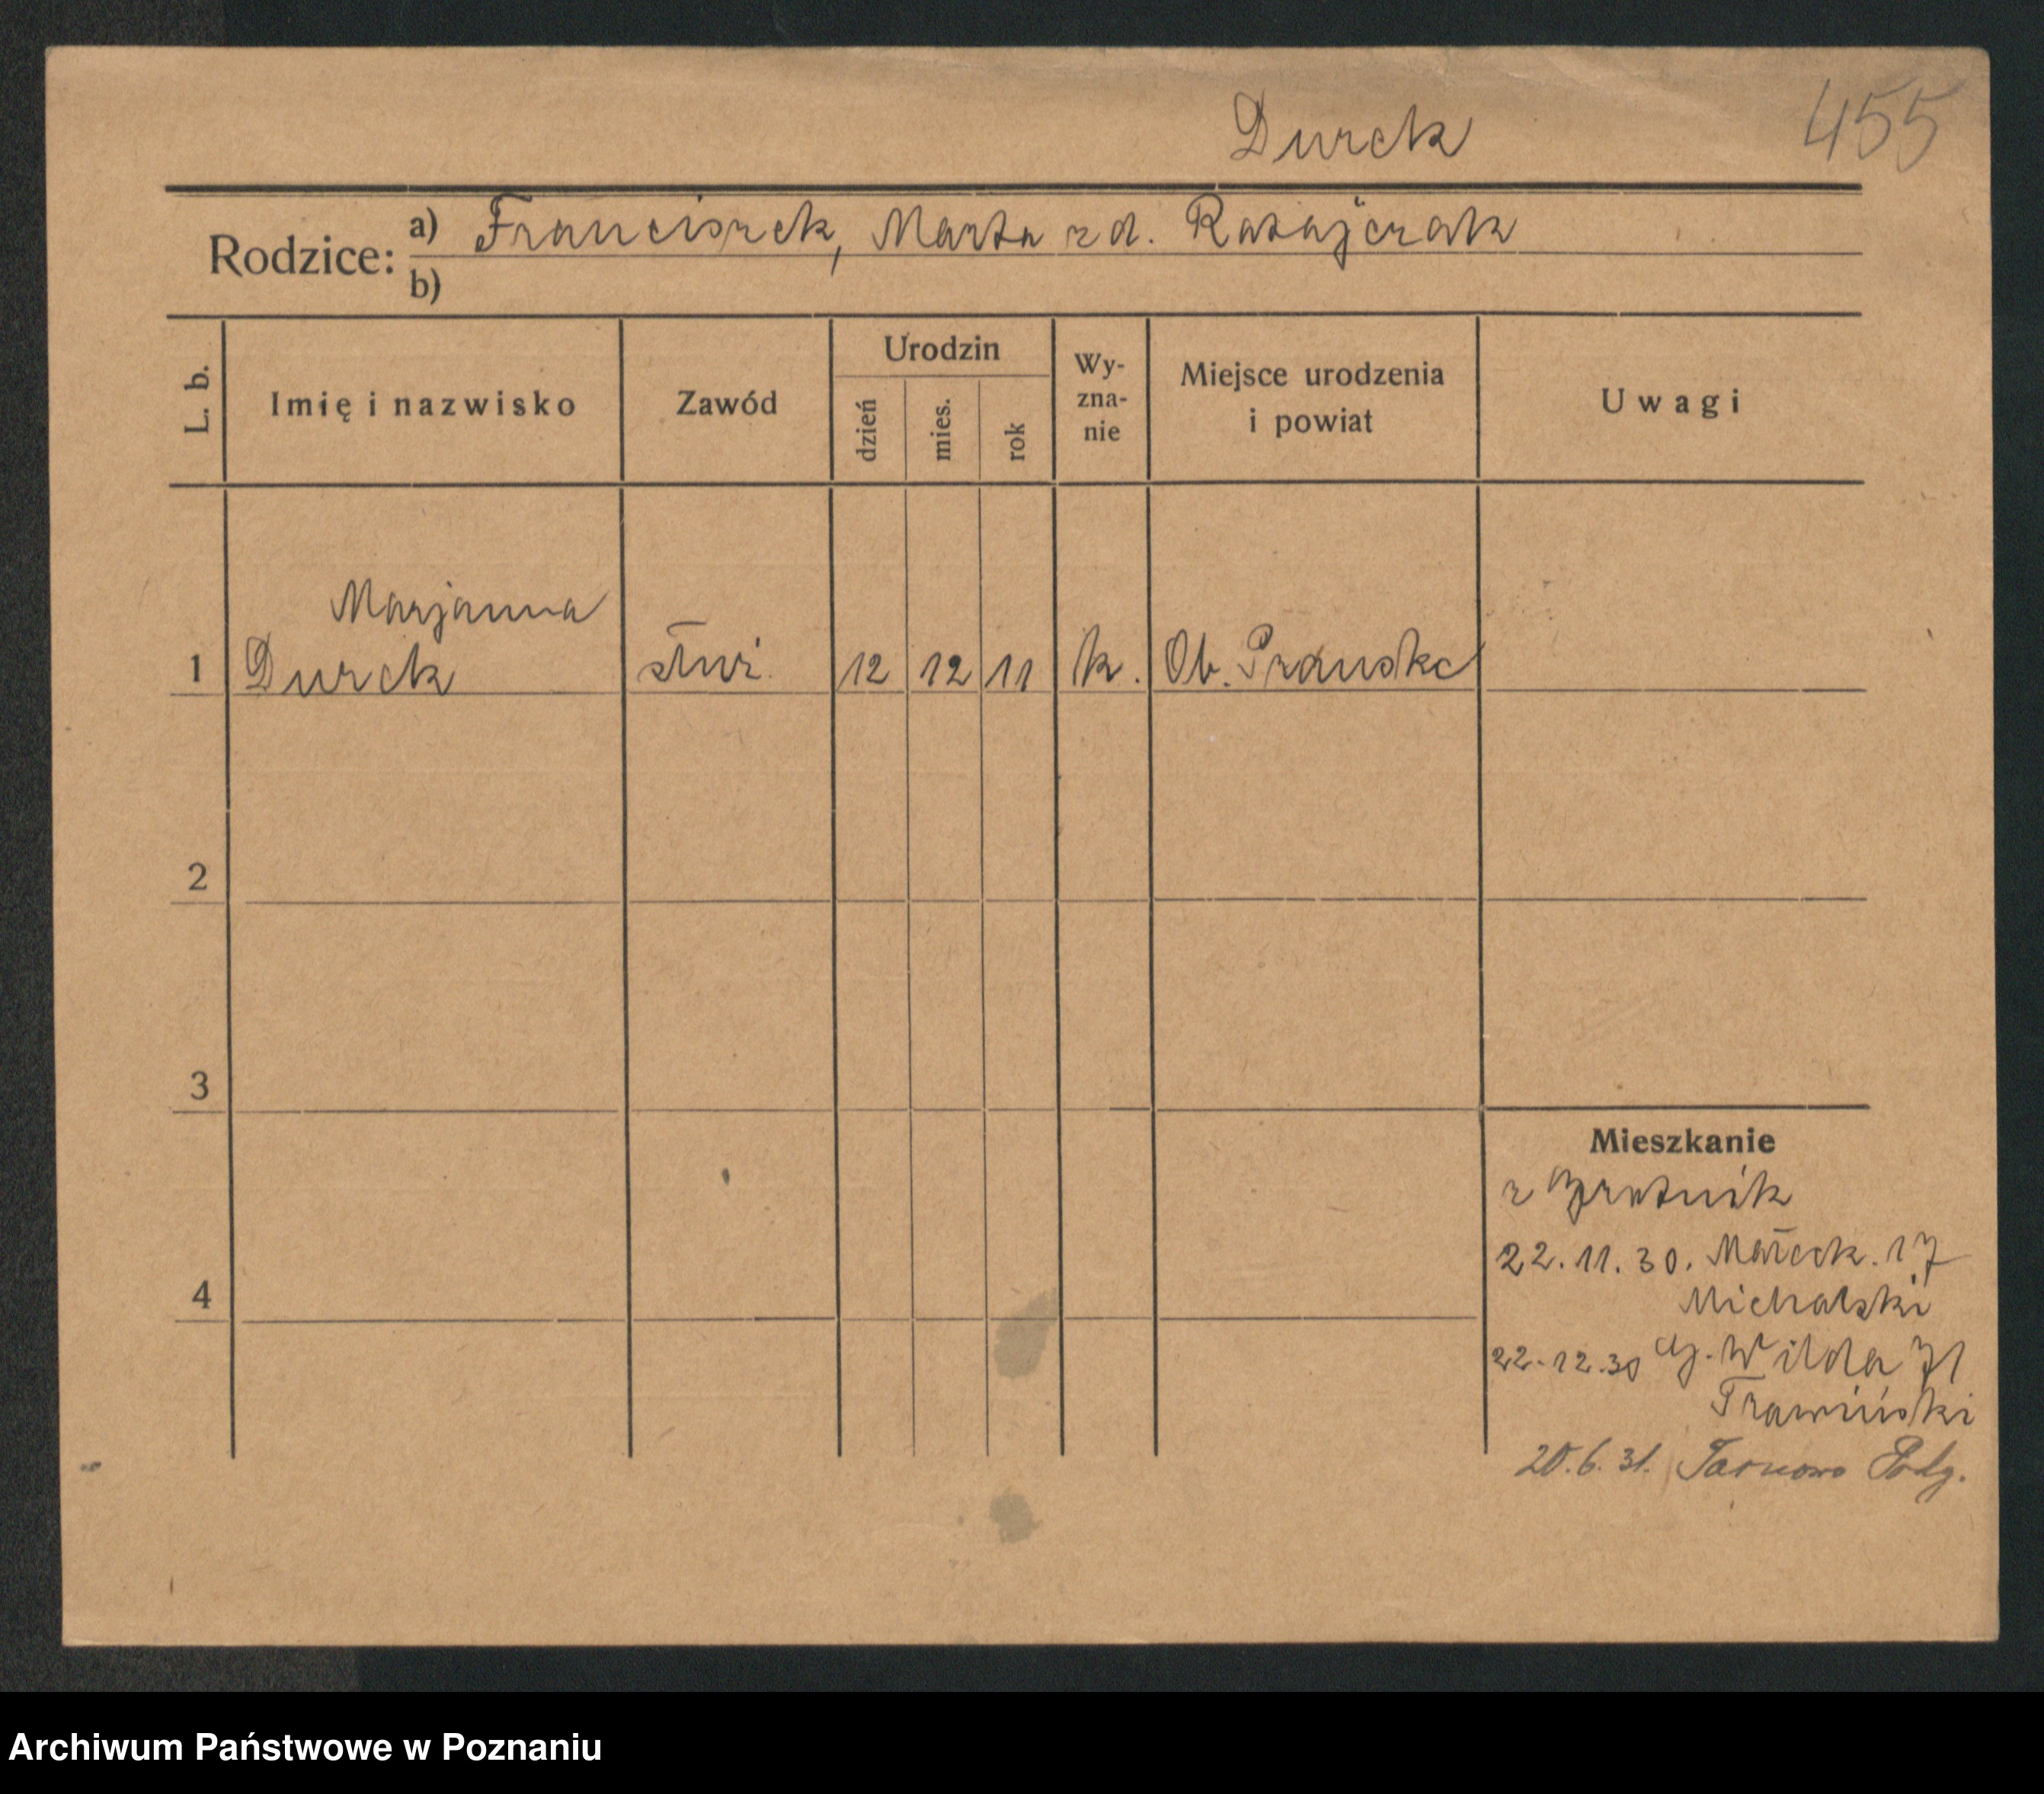 Durek
455
Rodzice: a) Franciszek, Marta z d. Ratajczak
b)
L. b. Imię i nazwisko Zawód Urodzin dzień mies. rok Wy-zna-nie Miejsce urodzenia i powiat Uwagi
Marjanna
1 Durek służ. 12 12 11 k. Ob.
2
3
4
Mieszkanie
z
22.11.30. Małeck. 17
Michalski
22.12.30 G. Wilda 71
Trawiński
20.6.31. Tarnowo Podg.
Archiwum Państwowe w Poznaniu